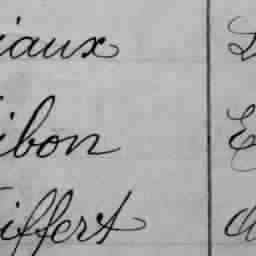 iaux D
ibon E
iffert A